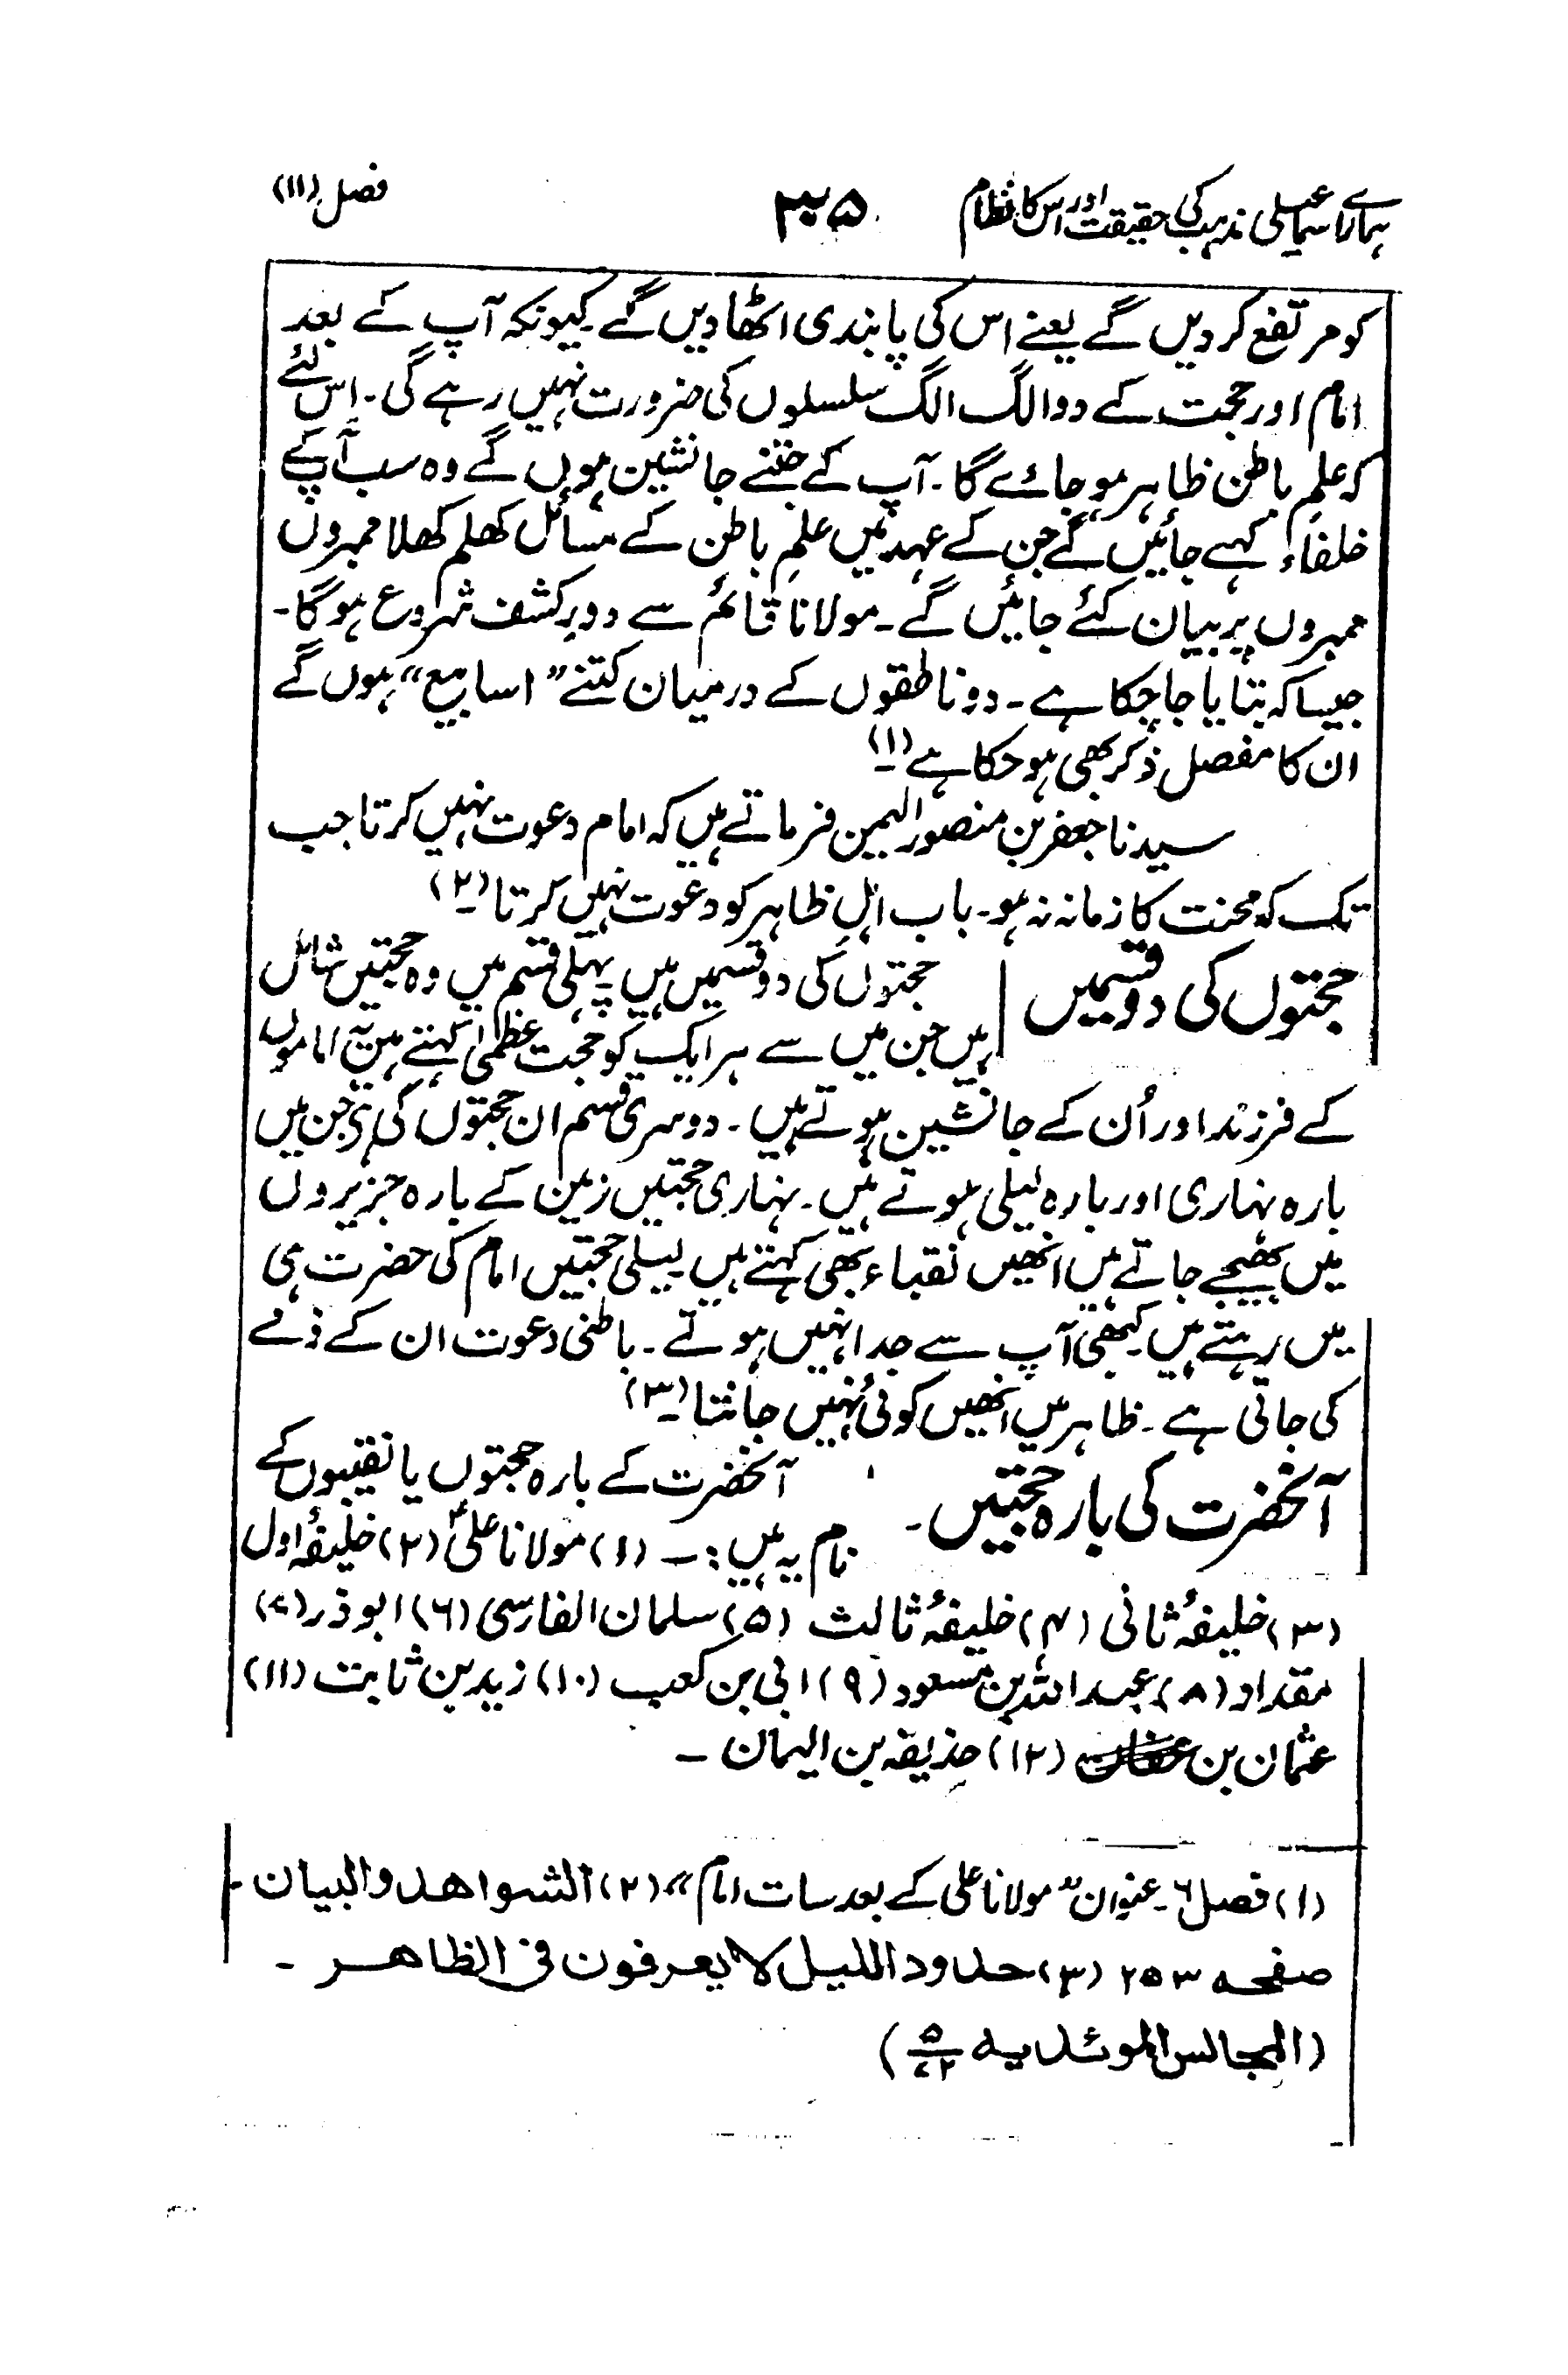 ہمارے اسماعیلی مذہب کی حقیقت اور اس کا نظام ۳۴۵ فصل (۱۱)
کو مرتفع کر دیں گے یعنے اس کی پابندی اٹھا دیں گے۔ کیونکہ آپ کے بعد
امام اور حجت کے دو الگ الگ سلسلوں کی ضرورت نہیں رہے گی۔ اِس لئے
کہ علمِ باطن ظاہر ہو جائے گا۔ آپ کے جتنے جانشین ہوں گے وہ سب آپ کے
خلفاء کہے جائیں گے جن کے عہد میں علمِ باطن کے مسائل کھلم کھلا ممبروں
ممبروں پر بیان کئے جائیں گے۔ مولانا قائم سے دورِ کشف شروع ہو گا۔
جیسا کہ بتایا جا چکا ہے۔ دو ناطقوں کے درمیان کتنے "اسابیع" ہوں گے
ان کا مفصل ذکر بھی ہو چکا ہے (۱)
سیدنا جعفر بن منصور الیمن فرماتے ہیں کہ امام دعوت نہیں کرتا جب
تک کہ محنت کا زمانہ نہ ہو۔ باب اہلِ ظاہر کو دعوت نہیں کرتا (۲)
حجتوں کی دو قسمیں
حجتوں کی دو قسمیں ہیں پہلی قسم میں وہ حجتیں شامل
ہیں جن میں سے ہر ایک کو حجت عظمیٰ کہتے ہیں یہ اماموں
کے فرزند اور اُن کے جانشین ہوتے ہیں۔ دوسری قسم ان حجتوں کی ہے جن میں
بارہ نہاری اور بارہ لیلی ہوتے ہیں۔ نہاری حجتیں زمین کے بارہ جزیروں
میں بھیجے جاتے ہیں انھیں نقباء بھی کہتے ہیں۔ لیلی حجتیں امام کی حضرت ہی
میں رہتے ہیں۔ کبھی آپ سے جدا نہیں ہوتے۔ باطنی دعوت ان کے ذمے
کی جاتی ہے۔ ظاہر میں انھیں کوئی نہیں جانتا (۳)
آنحضرت کی بارہ حجتیں۔
آنحضرت کے بارہ حجتوں یا نقیبوں کے
نام یہ ہیں:۔ (۱) مولانا علیؑ (۲) خلیفۂ اول
(۳) خلیفۂ ثانی (۴) خلیفۂ ثالث (۵) سلمان الفارسی (۶) ابوذر (۷)
مقداد (۸) عبداللہ بن مسعود (۹) ابی بن کعب (۱۰) زید بن ثابت (۱۱)
عثمان بن (۱۲) حذیفہ بن الیمان۔
(۱) فصل ۶۔ عنوان "مولانا علی کے بعد سات امام" (۲) الشواهد والبیان۔
صفحہ ۲۵۳ (۳) حدود اللیل لا یعرفون فی الظاهر۔
(المجالس الموئدیه ۵/۷۲)